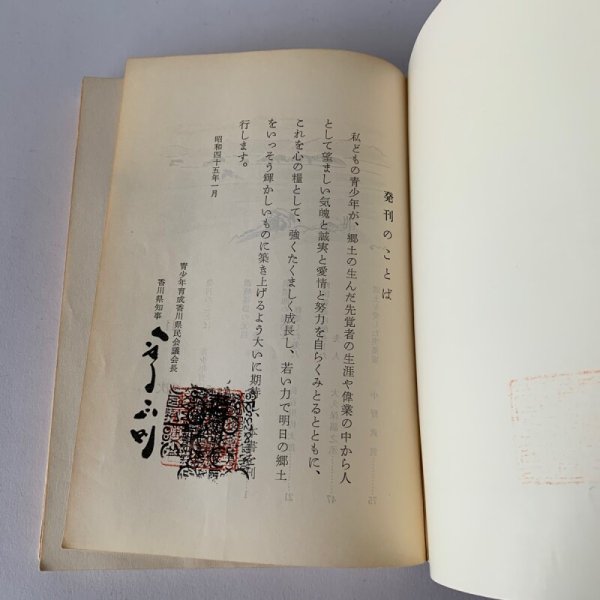 発刊のことば
私どもの青少年が、郷土の生んだ先覚者の生涯や偉業の中から人
として望ましい気魄と誠実と愛情と努力を自らくみとるとともに、
これを心の糧として、強くたくましく成長し、若い力で明日の郷土
をいっそう輝かしいものに築き上げるよう大いに期待し本書を刊
行します。
昭和四十五年一月
青少年育成香川県民会議会長
香川県知事